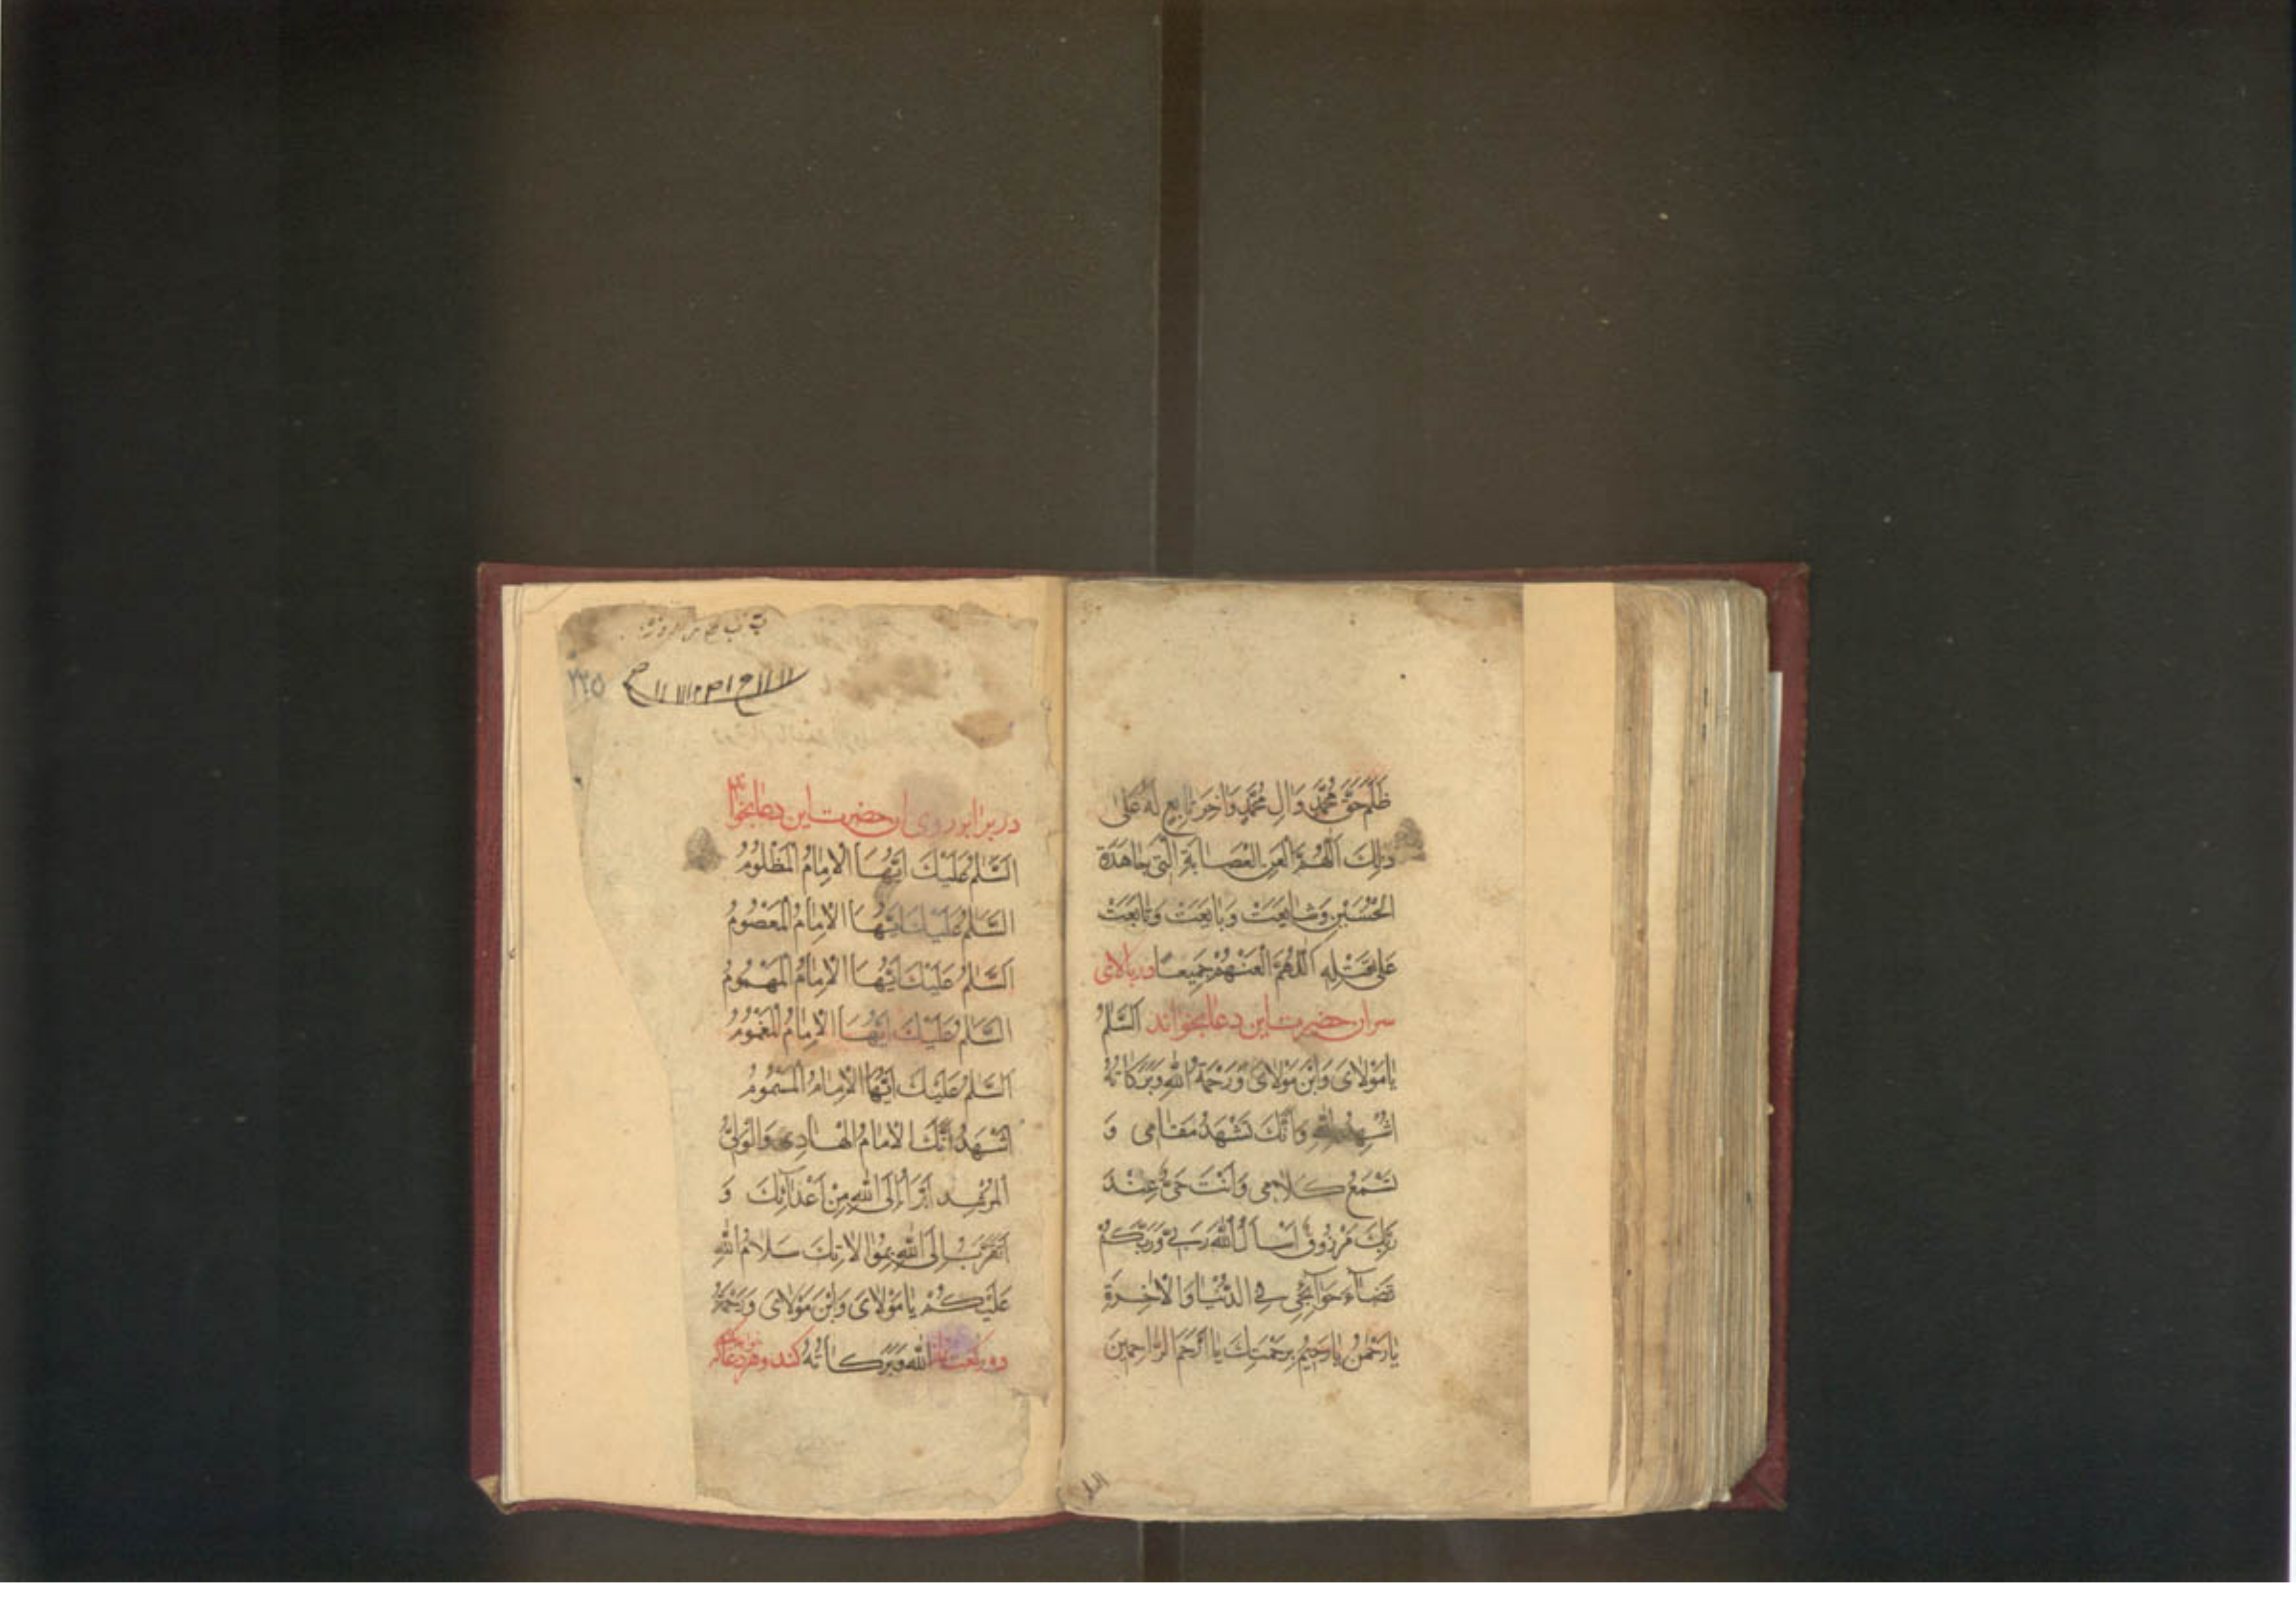 ظَلَمَ حَقَّ مُحَمَّدٍ وَالِ مُحَمَّدٍ وَاخِرَ تابِعٍ لَهُ عَلىٰ
ذٰلِكَ اَللّٰهُمَّ الْعَنِ الْعِصابَةَ الَّتى جاهَدَةِ
الْحُسَيْنَ وَشايَعَتْ وَبايَعَتْ وَتابَعَتْ
عَلىٰ قَتْلِهِ اَللّٰهُمَّ الْعَنْهُمْ جَميعًا در بالای
سر ان حضرت این دعا بخواند اَلسَّلٰمُ
يٰا مَوْلٰاىَ وَابْنَ مَوْلٰاىَ وَرَحْمَةُ اللّٰهِ وَبَرَكاتُهُ
اَشْهِدُ اللّٰهَ وَاَنَّكَ تَشْهَدُ مَقامى وَ
تَسْمَعُ كَلامى وَاَنْتَ حَىٌّ عِنْدَ
رَبِّكَ مَرْزُوقٌ اَسْاَلُ اللّٰهَ رَبّى وَرَبَّكُمْ
قَضآءَ حَوآئِجى فِى الدُّنْيا وَالْاٰخِرَةِ
يا رَحْمٰنُ يا رَحيمُ بِرَحْمَتِكَ يا اَرْحَمَ الرّاحِمينَ
٢٢٥
در برابر روی ان حضرت این دعا بخواند
اَلسَّلٰمُ عَلَيْكَ اَيُّهَا الْاِمٰامُ الْمَظْلُومُ
اَلسَّلٰمُ عَلَيْكَ اَيُّهَا الْاِمٰامُ الْمَعْصُومُ
اَلسَّلٰمُ عَلَيْكَ اَيُّهَا الْاِمٰامُ الْمَهْمُومُ
اَلسَّلٰمُ عَلَيْكَ اَيُّهَا الْاِمٰامُ الْمَغْمُومُ
اَلسَّلٰمُ عَلَيْكَ اَيُّهَا الْاِمٰامُ الْمَسْمُومُ
اَشْهَدُ اَنَّكَ الْاِمامُ الْهادِى وَالْوَلِىُّ
الْمُرْشِدُ اَبْرَاُ اِلَى اللّٰهِ مِنْ اَعْدآئِكَ وَ
اَتَقَرَّبُ اِلَى اللّٰهِ بِمُوالاتِكَ سَلامُ اللّٰهِ
عَلَيْكُمْ يا مَوْلاىَ وَابْنَ مَوْلاىَ وَرَحْمَةُ
اللّٰهِ وَبَرَكاتُهُ دو رکعت نماز کند و هر دعا که